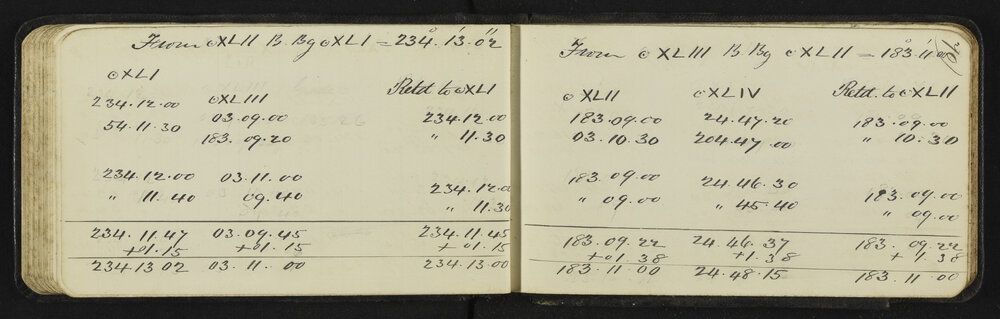 From ⊙XLII B. Bg ⊙XLI = 234°.13'.02"
⊙XLI
⊙XLIII
Retd. to ⊙XLI
234.12.00 03.09.00 234.12.00
54.11.30 183.09.20 " 11.30
234.12.00 03.11.00 234.12.00
" 11.40 09.40 " 11.30
234.11.47 03.09.45 234.11.45
+01.15 +01.15 +01.15
234.13 02 03.11.00 234.13.00
From ⊙XLIII B. Bg ⊙XLII = 183°.11'.00"
⊙XLII ⊙XLIV Retd. to ⊙XLII
183.09.00 24.47.20 183.09.00
03.10.30 204.47.00 " 10.30
183.09.00 24.46.30 183.09.00
" 09.00 " 45.40 " 09.00
183.09.22 24.46.37 183.09.22
+01 38 +1.38 +1 38
183.11 00 24.48.15 183.11 00